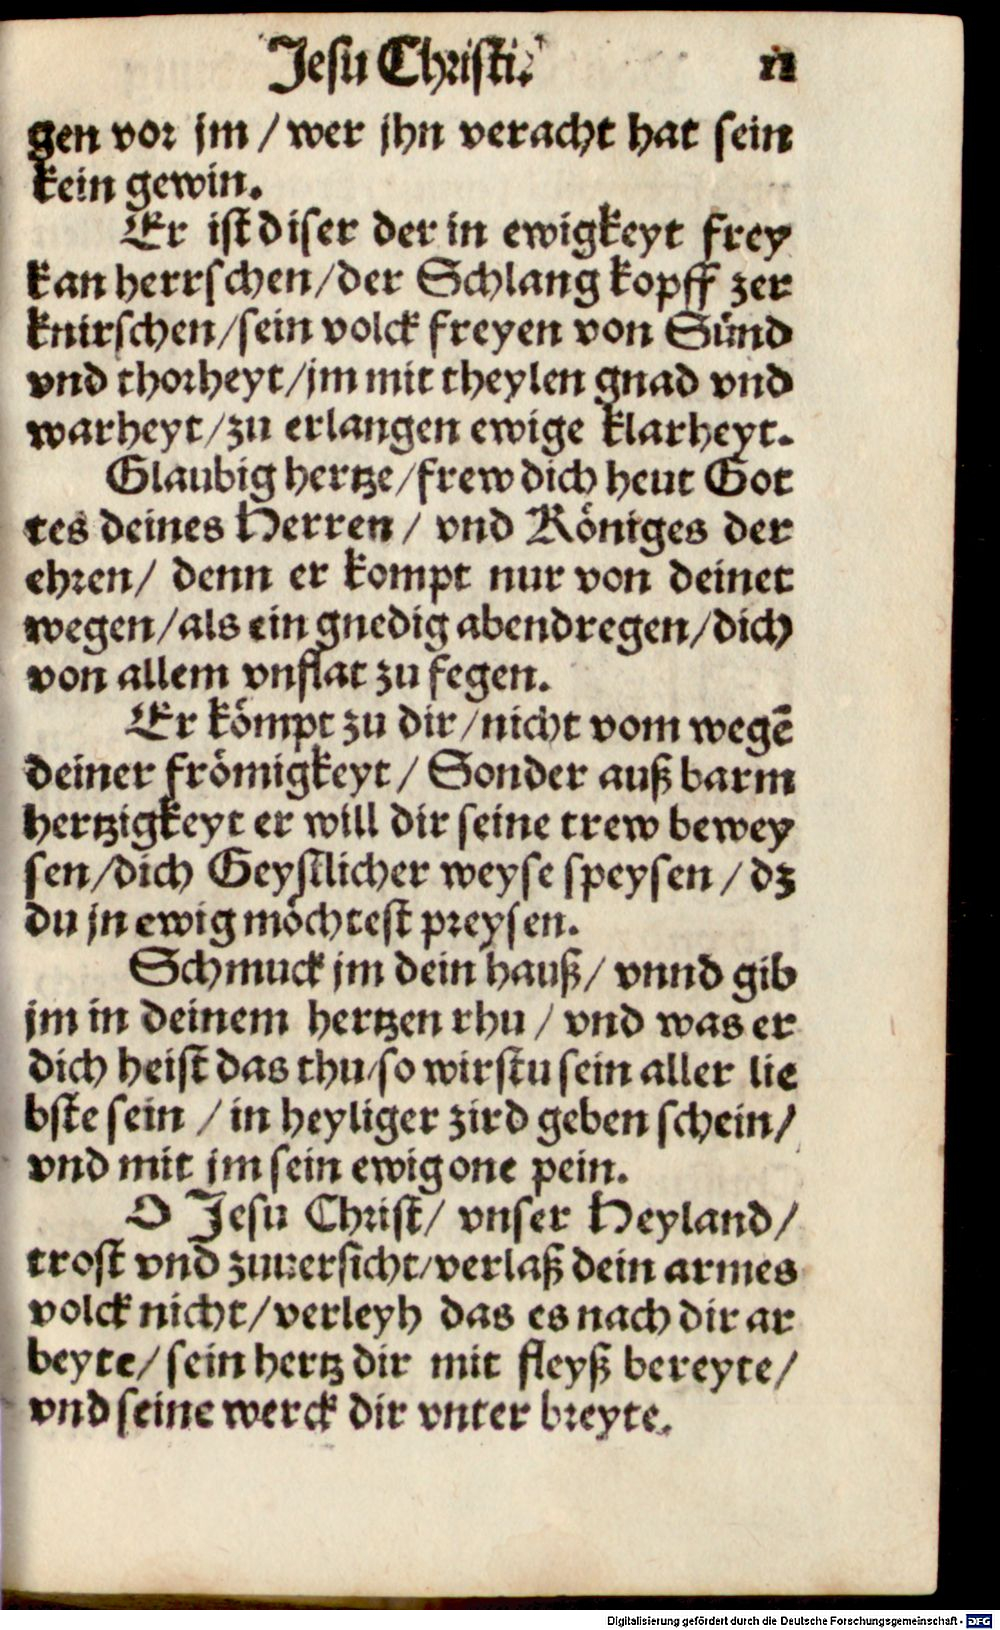 Jesu Christi. 11
gen vor jm / wer jhn veracht hat sein
kein gewin.
Er ist diser der in ewigkeyt frey
kan herrschen / der Schlang kopff zer
knirschen / sein volck freyen von Sünd
vnd thorheyt / jm mit theylen gnad vnd
warheyt / zu erlangen ewige klarheyt.
Glaubig hertze / frew dich heut Got
tes deines Herren / vnd Königes der
ehren / denn er kompt nur von deinet
wegen / als ein gnedig abendregen / dich
von allem vnflat zu fegen.
Er kömpt zu dir / nicht vom wegē
deiner frömigkeyt / Sonder auß barm
hertzigkeyt er will dir seine trew bewey
sen / dich Geystlicher weyse speysen / dz
du jn ewig möchtest preysen.
Schmuck jm dein hauß / vnnd gib
jm in deinem hertzen rhu / vnd was er
dich heist das thu / so wirstu sein aller lie
bste sein / in heyliger zird geben schein /
vnd mit jm sein ewig one pein.
O Jesu Christ / vnser Heyland /
trost vnd zuuersicht / verlaß dein armes
volck nicht / verleyh das es nach dir ar
beyte / sein hertz dir mit fleyß bereyte /
vnd seine werck dir vnter breyte.
Digitalisierung gefördert durch die Deutsche Forschungsgemeinschaft - DFG